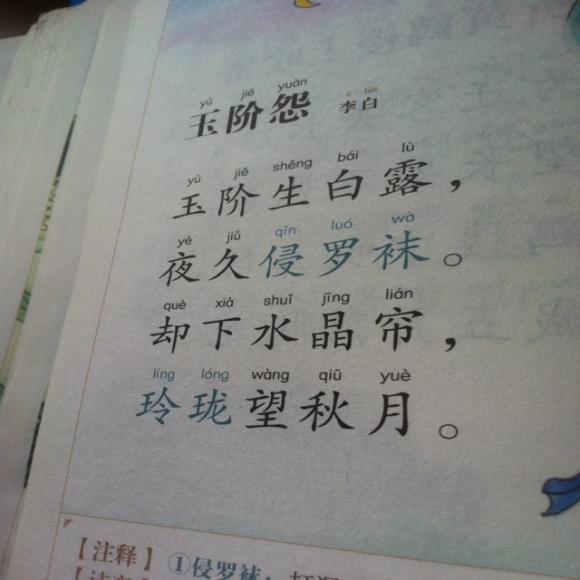 yù jiē yuàn
玉阶怨 李白
yù jiē shēng bái lù
玉阶生白露，
yè jiǔ qīn luó wà
夜久侵罗袜。
què xià shuǐ jīng lián
却下水晶帘，
líng lóng wàng qiū yuè
玲珑望秋月。
【注释】①侵罗袜：打湿